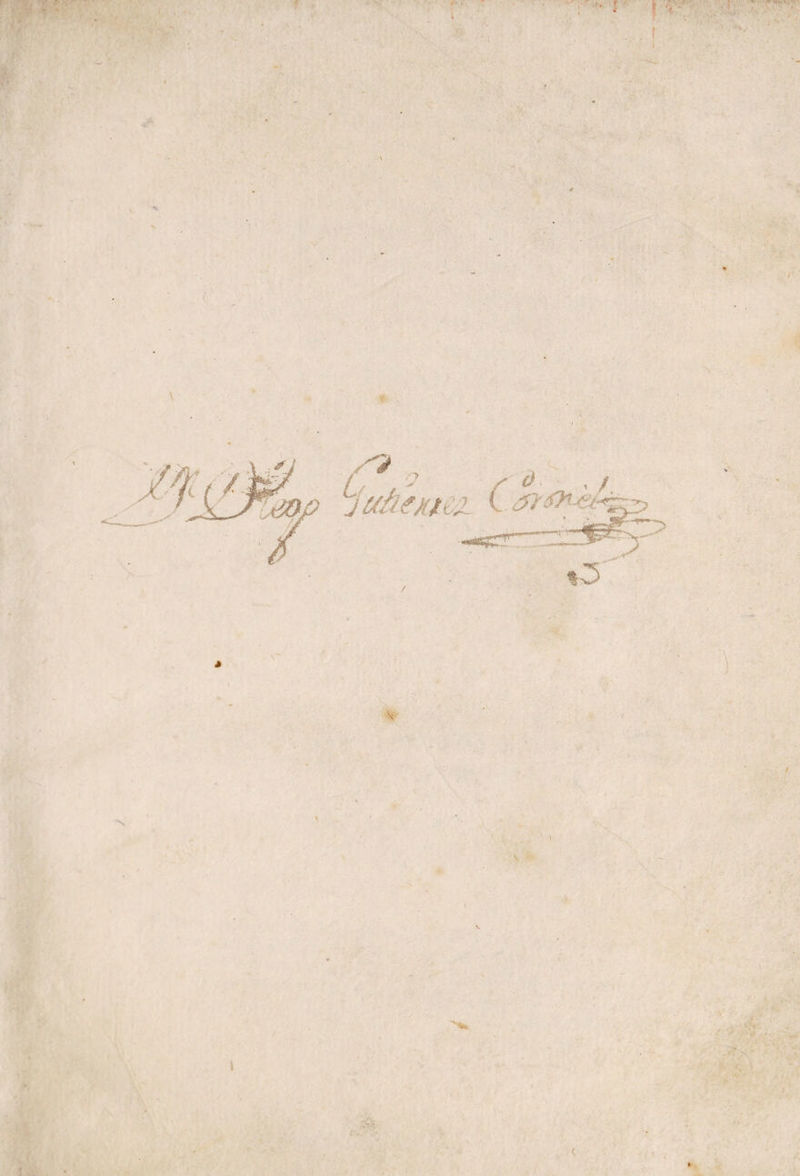 Dr. Diego Gutierrez Coronel